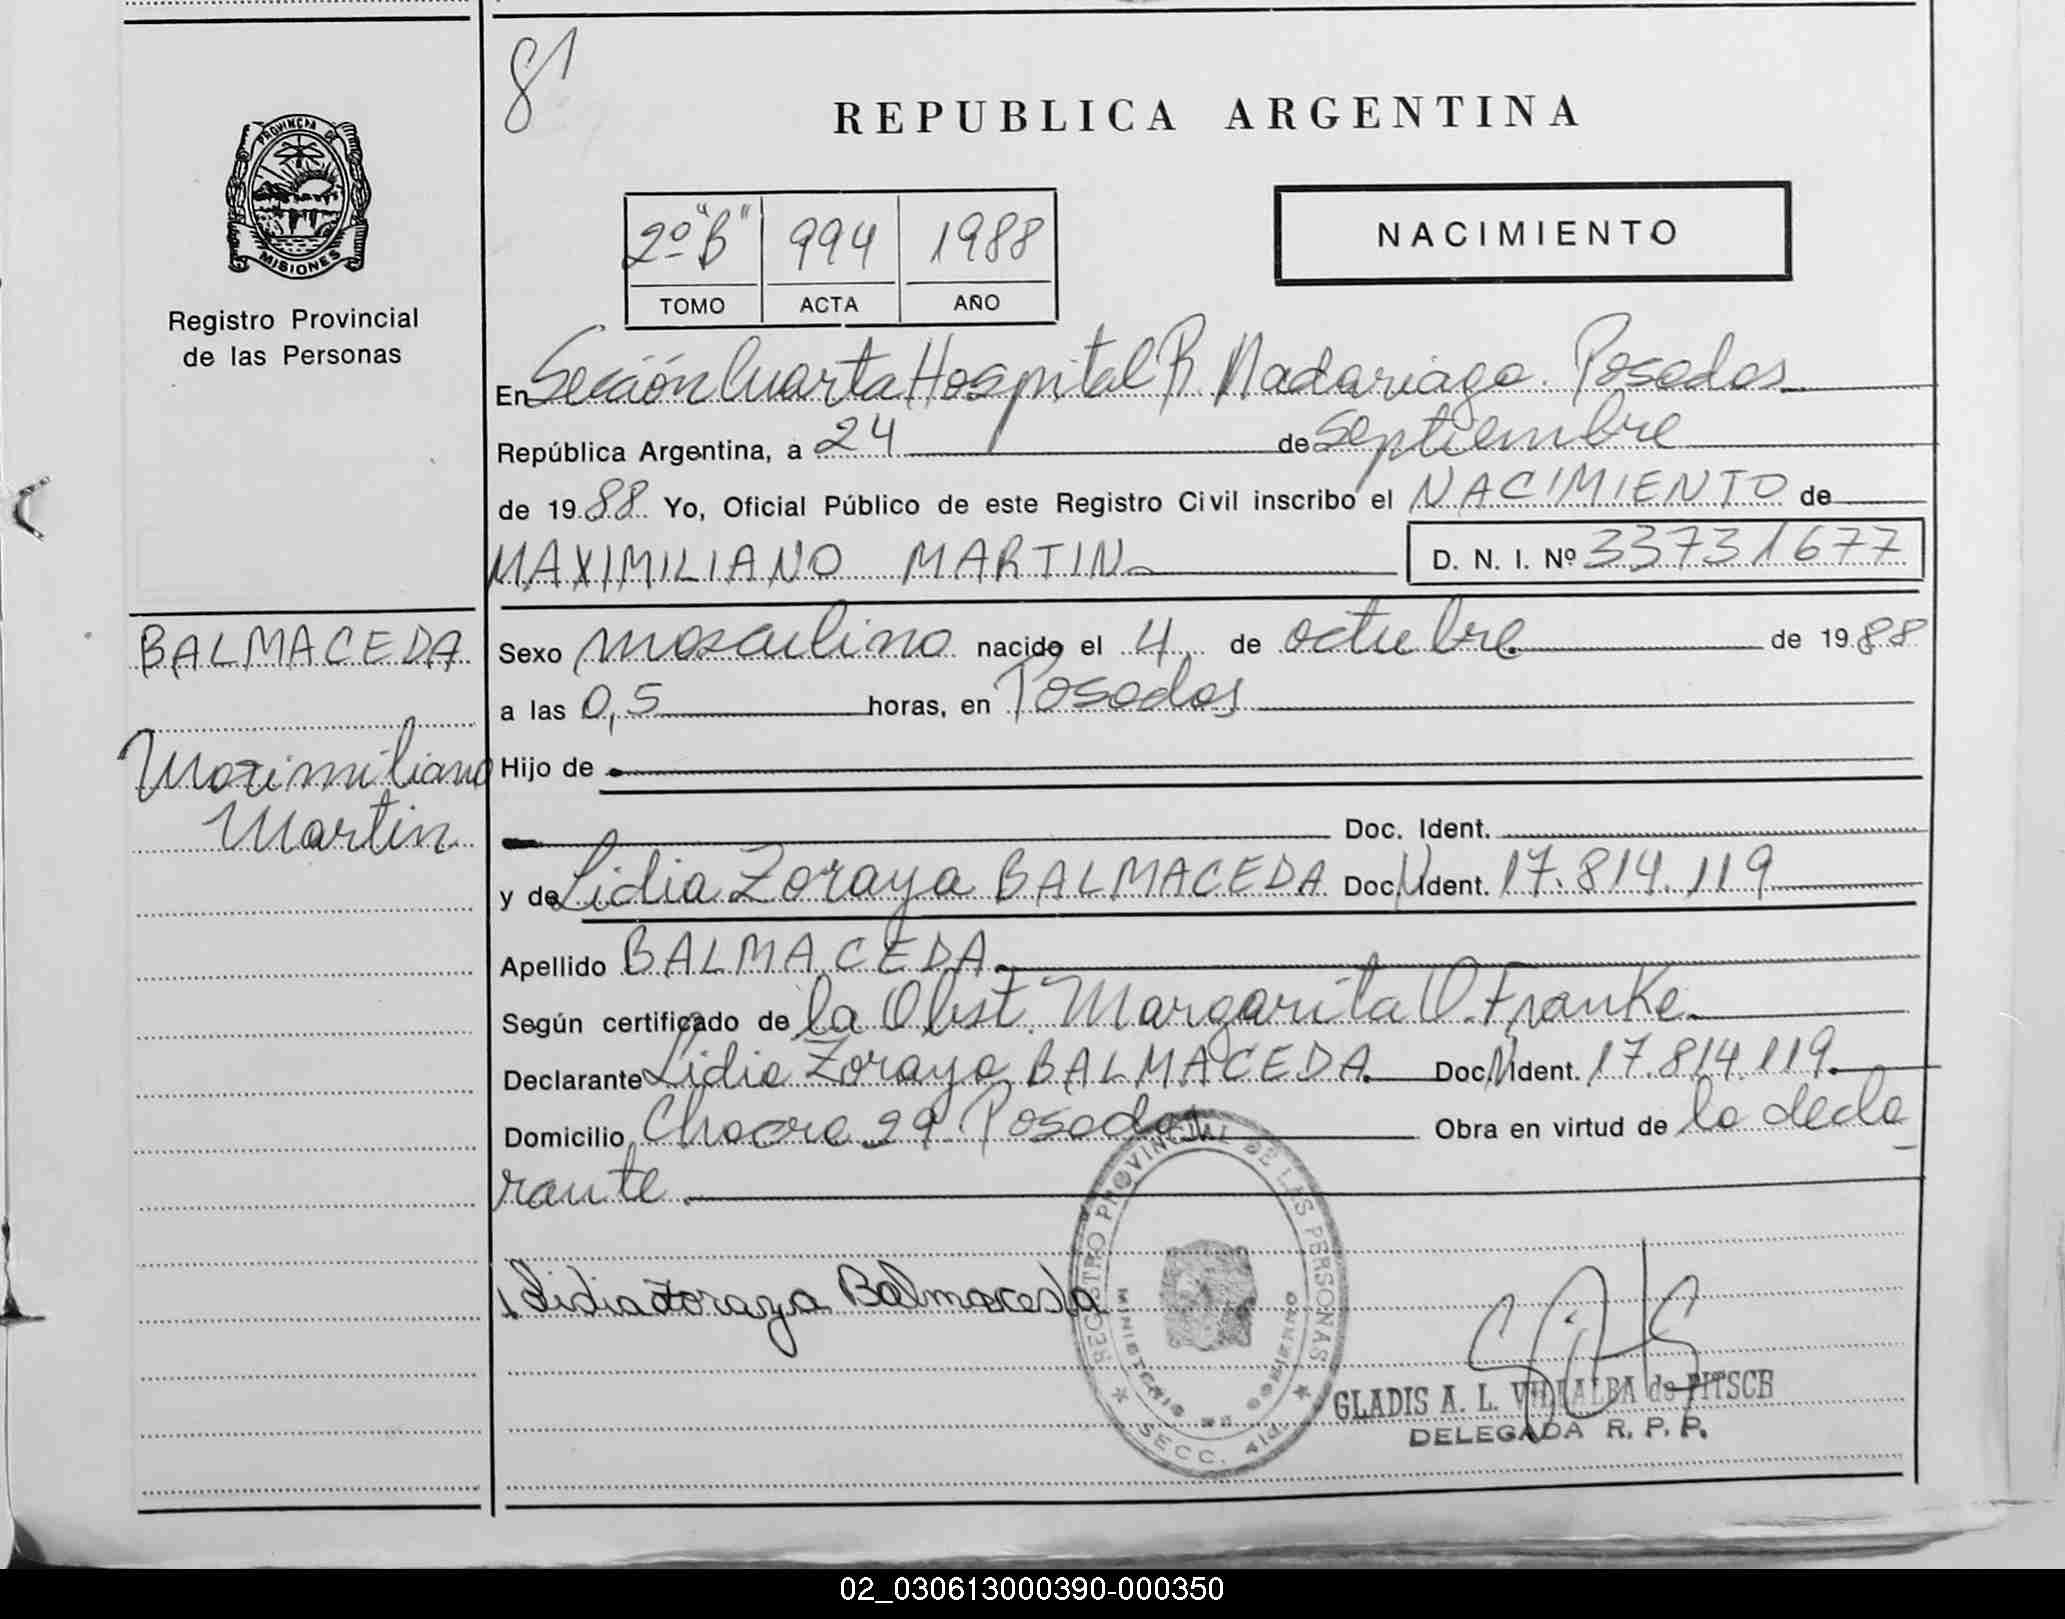 81
REPUBLICA ARGENTINA
PROVINCIA DE
MISIONES
Registro Provincial
de las Personas
2º "B" 994 1988
TOMO ACTA AÑO
NACIMIENTO
En Sección Cuarta Hospital R. Madariaga. Posadas
República Argentina, a 24 de Septiembre
de 1988 Yo, Oficial Público de este Registro Civil inscribo el NACIMIENTO de
MAXIMILIANO MARTIN D. N. I. Nº 33731677
BALMACEDA
Maximiliano
Martin
Sexo masculino nacido el 4 de octubre de 1988
a las 0,5 horas, en Posadas
Hijo de
Doc. Ident.
y de Lidia Zoraya BALMACEDA Doc. N. Ident. 17.814.119
Apellido BALMACEDA
Según certificado de la Obst. Margarita O. Franke
Declarante Lidia Zoraya BALMACEDA Doc. N. Ident. 17.814.119
Domicilio Chacra 29 Posadas Obra en virtud de la decla
rante
Lidia Zoraya Balmaceda
REGISTRO PROVINCIAL DE LAS PERSONAS
MINISTERIO DE GOBIERNO
SECC. 4ta.
GLADIS A. L. VILLALBA de PITSCH
DELEGADA R. P. P.
02_030613000390-000350